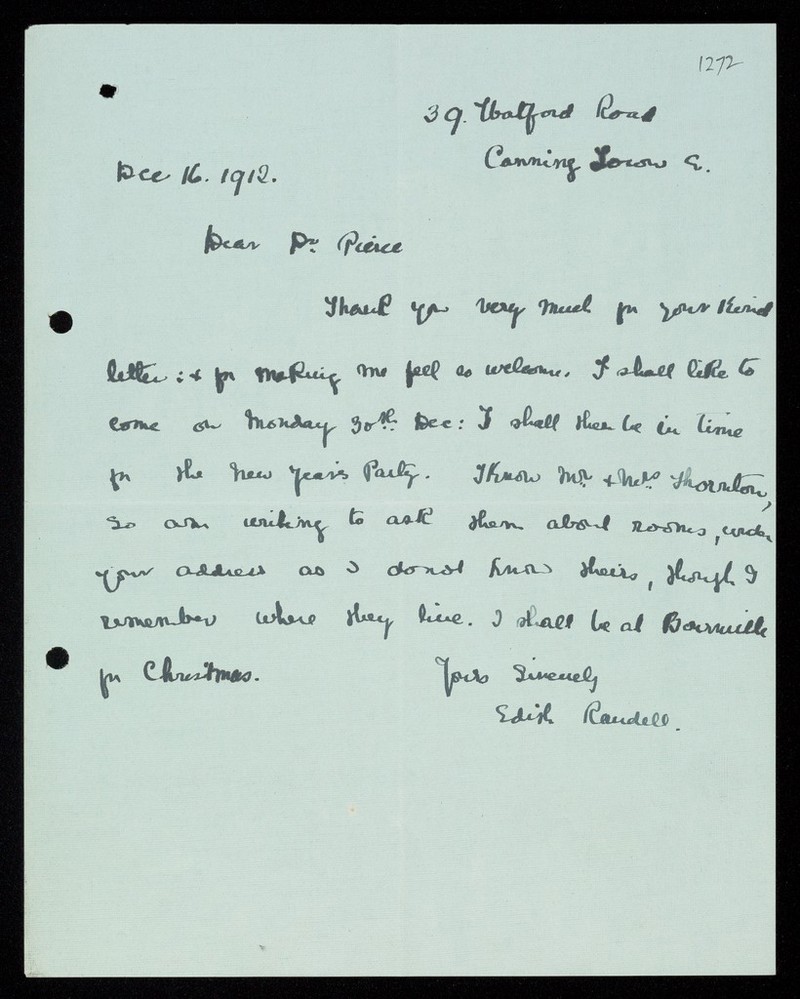 1272
39. Watford Road
Canning Town E.
Dec 16. 1912.
Dear Dr. Pierce
Thank you very much for your kind
letter: & for making me feel so welcome. I shall like to
come on Monday 30th. Dec: I shall then be in time
for the New Year's Party. I know Mr. & Mrs. Thornton,
so am writing to ask them about rooms, under
your address as I do not know theirs, though I
remember where they live. I shall be at Bournville
for Christmas.
Yours Sincerely
Edith Randell.